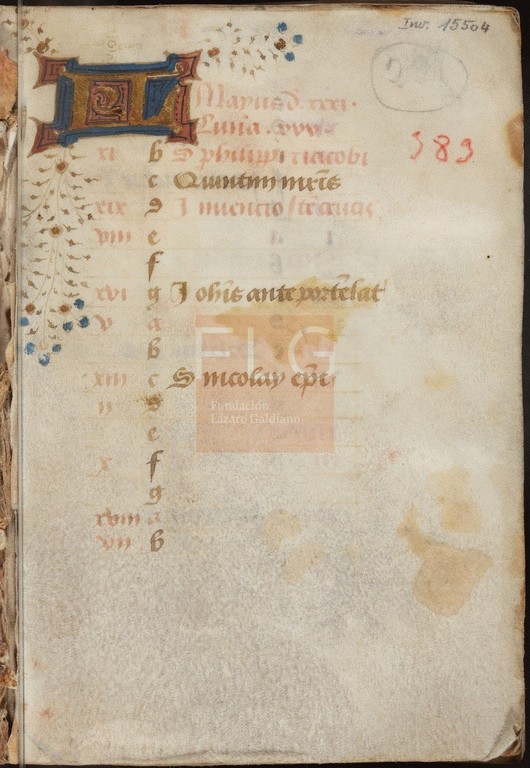 Inv. 15504
KL Mayus d. xxxi.
Luna xxx
383
xi b S philippi et iacobi
c Quintini mris
xix d Inuencio sce crucis
viii e
f
xvi g Johis ante portelat
v a
b
FLG
xiii c S nicolay epi
ii d
Fundación
Lázaro Galdiano
e
x f
g
xviii a
vii b